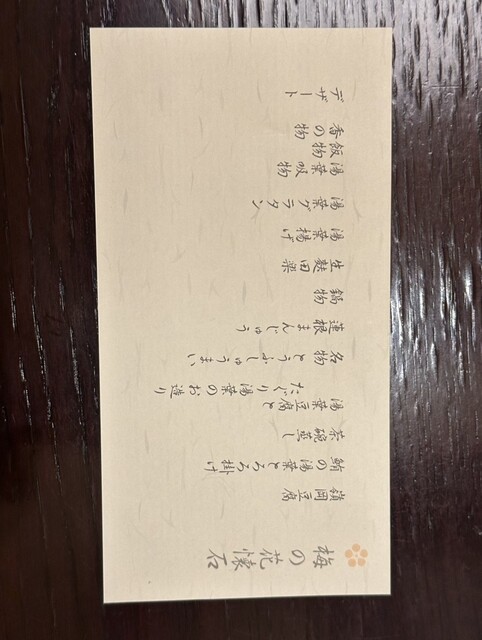 梅の花懐石
嶺岡豆腐
鮪の湯葉とろろ掛け
茶碗蒸し
湯葉豆腐と
たぐり湯葉のお造り
名物とうふしゅうまい
蓮根まんじゅう
鍋物
生麩田楽
湯葉揚げ
湯葉グラタン
湯葉吸物
飯物
香の物
デザート